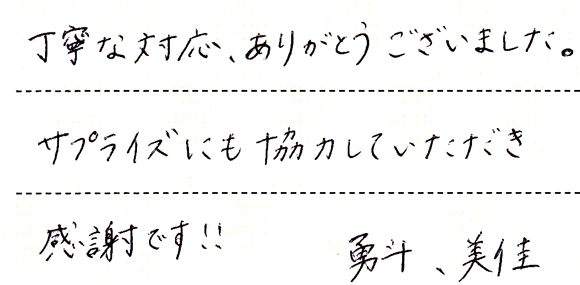 丁寧な対応、ありがとうございました。
サプライズにも協力していただき
感謝です!! 勇斗、美佳